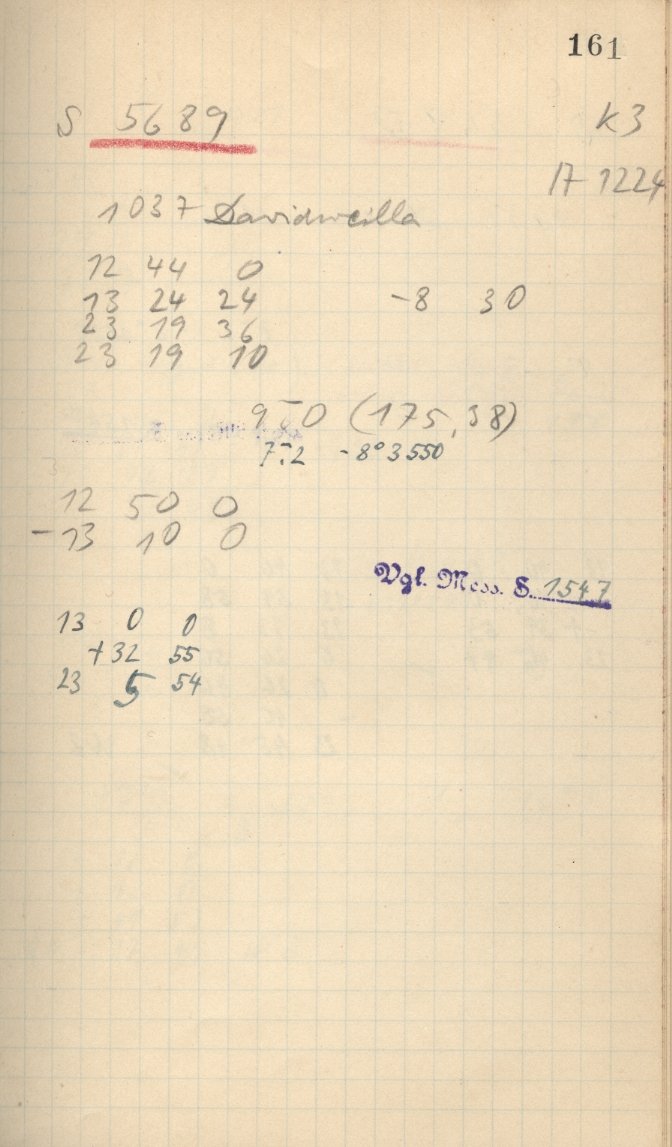 161
S 5689 K3
17 1224
1037 Davidweilla
12 44 0
13 24 24 -8 30
23 19 36
23 19 10
9 - 0 (175,38)
7:2 -8° 3550
12 50 0
- 13 10 0
Vgl. Mess. S. 1547
13 0 0
+32 55
23 5 54